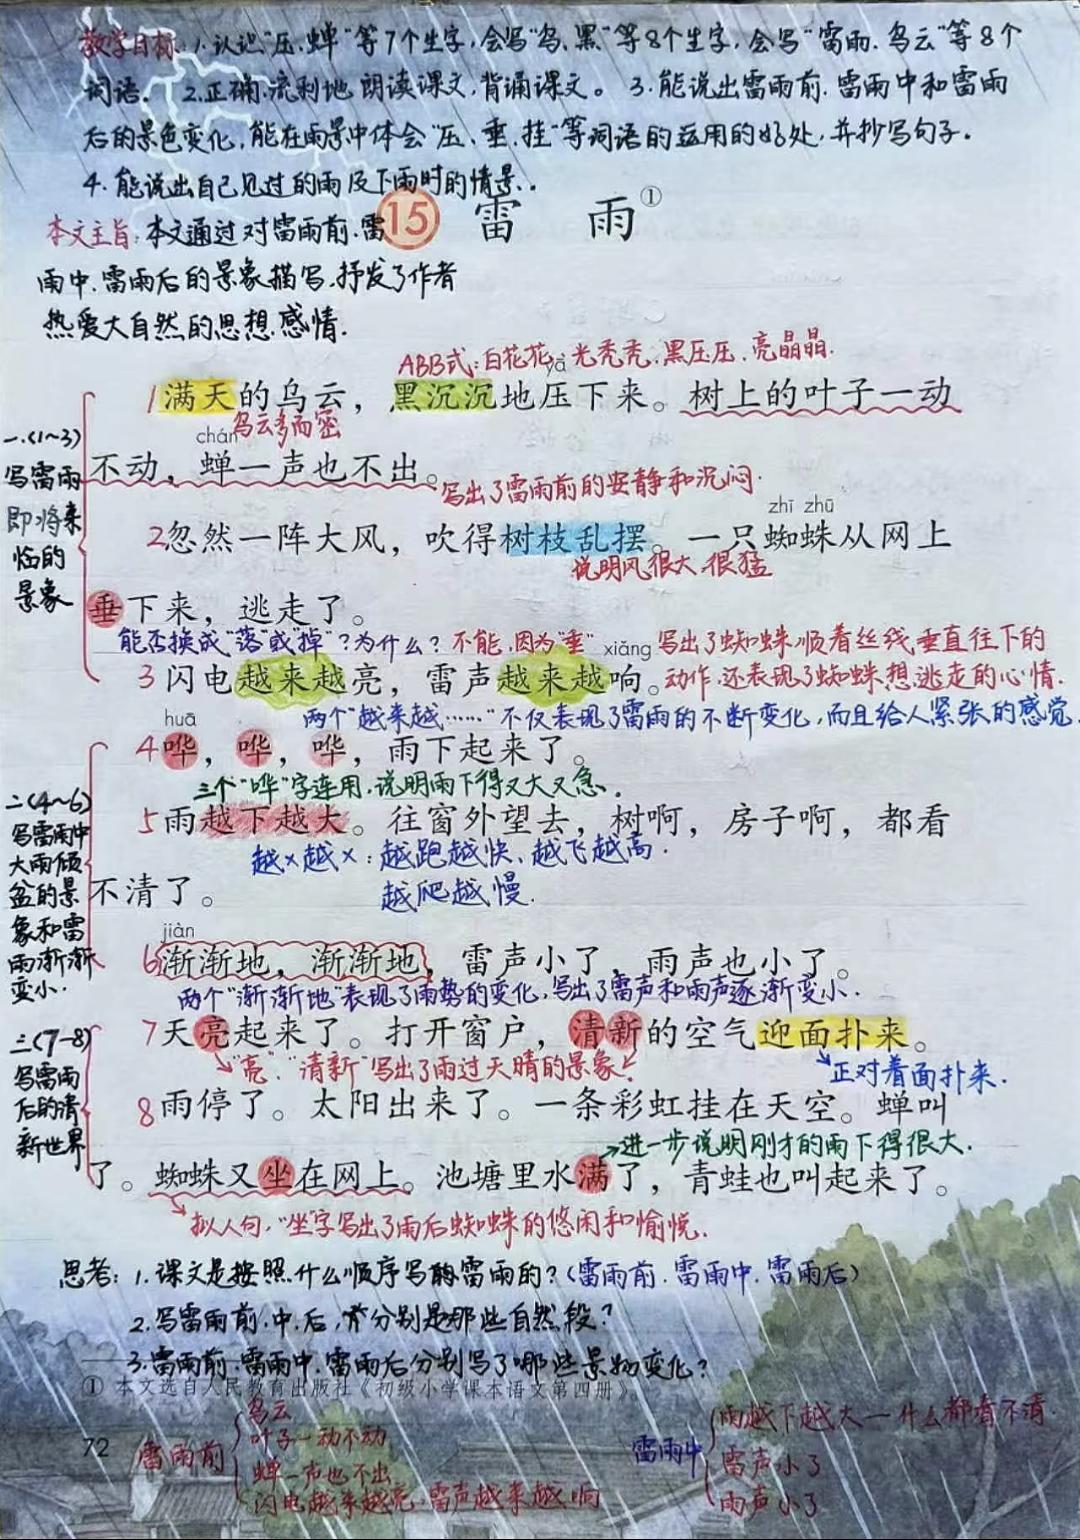 教学目标:1.认识“压、蝉”等7个生字,会写“乌、黑”等8个生字,会写“雷雨、乌云”等8个
词语. 2.正确、流利地朗读课文,背诵课文。 3.能说出雷雨前、雷雨中和雷雨
后的景色变化,能在雨景中体会“压、垂、挂”等词语的运用的好处,并抄写句子。
4.能说出自己见过的雨及下雨时的情景.
15 雷 雨 ①
本文主旨:本文通过对雷雨前、雷
雨中、雷雨后的景象描写,抒发了作者
热爱大自然的思想感情.
ABB式:白花花、光秃秃、黑压压、亮晶晶.
yā
1满天的乌云,黑沉沉地压下来。树上的叶子一动
乌云多而密
chán
一.(1~3)
写雷雨
即将来
临的
景象
不动,蝉一声也不出。
写出了雷雨前的安静和沉闷.
zhī zhū
2忽然一阵大风,吹得树枝乱摆。一只蜘蛛从网上
说明风很大、很猛
垂下来,逃走了。
能否换成“落”或“掉”?为什么?不能,因为“垂”写出了蜘蛛顺着丝线垂直往下的
动作,还表现了蜘蛛想逃走的心情.
xiǎng
3闪电越来越亮,雷声越来越响。
两个“越来越……”不仅表现了雷雨的不断变化,而且给人紧张的感觉.
huā
4哗,哗,哗,雨下起来了。
三个“哗”字连用,说明雨下得又大又急.
二(4~6)
写雷雨中
大雨倾
盆的景
象和雷
雨渐渐
变小.
5雨越下越大。往窗外望去,树啊,房子啊,都看
越×越×:越跑越快、越飞越高.
越爬越慢.
不清了。
jiàn
6渐渐地,渐渐地,雷声小了,雨声也小了。
两个“渐渐地”表现了雨势的变化,写出了雷声和雨声逐渐变小.
三(7-8)
写雷雨
后的清
新世界
7天亮起来了。打开窗户,清新的空气迎面扑来。
“亮”、“清新”写出了雨过天晴的景象.
正对着面扑来.
8雨停了。太阳出来了。一条彩虹挂在天空。蝉叫
进一步说明刚才的雨下得很大.
了。蜘蛛又坐在网上。池塘里水满了,青蛙也叫起来了。
拟人句,“坐”字写出了雨后蜘蛛的悠闲和愉悦.
思考:1.课文是按照什么顺序写雷雨的?(雷雨前、雷雨中、雷雨后)
2.写雷雨前、中、后,分别是那些自然段?
3.雷雨前、雷雨中、雷雨后分别写了哪些景物变化?
① 本文选自人民教育出版社《初级小学课本语文第四册》。
72
雷雨前
乌云
叶子一动不动
蝉一声也不出
闪电越来越亮,雷声越来越响
雷雨中
雨越下越大—什么都看不清
雷声小了
雨声小了